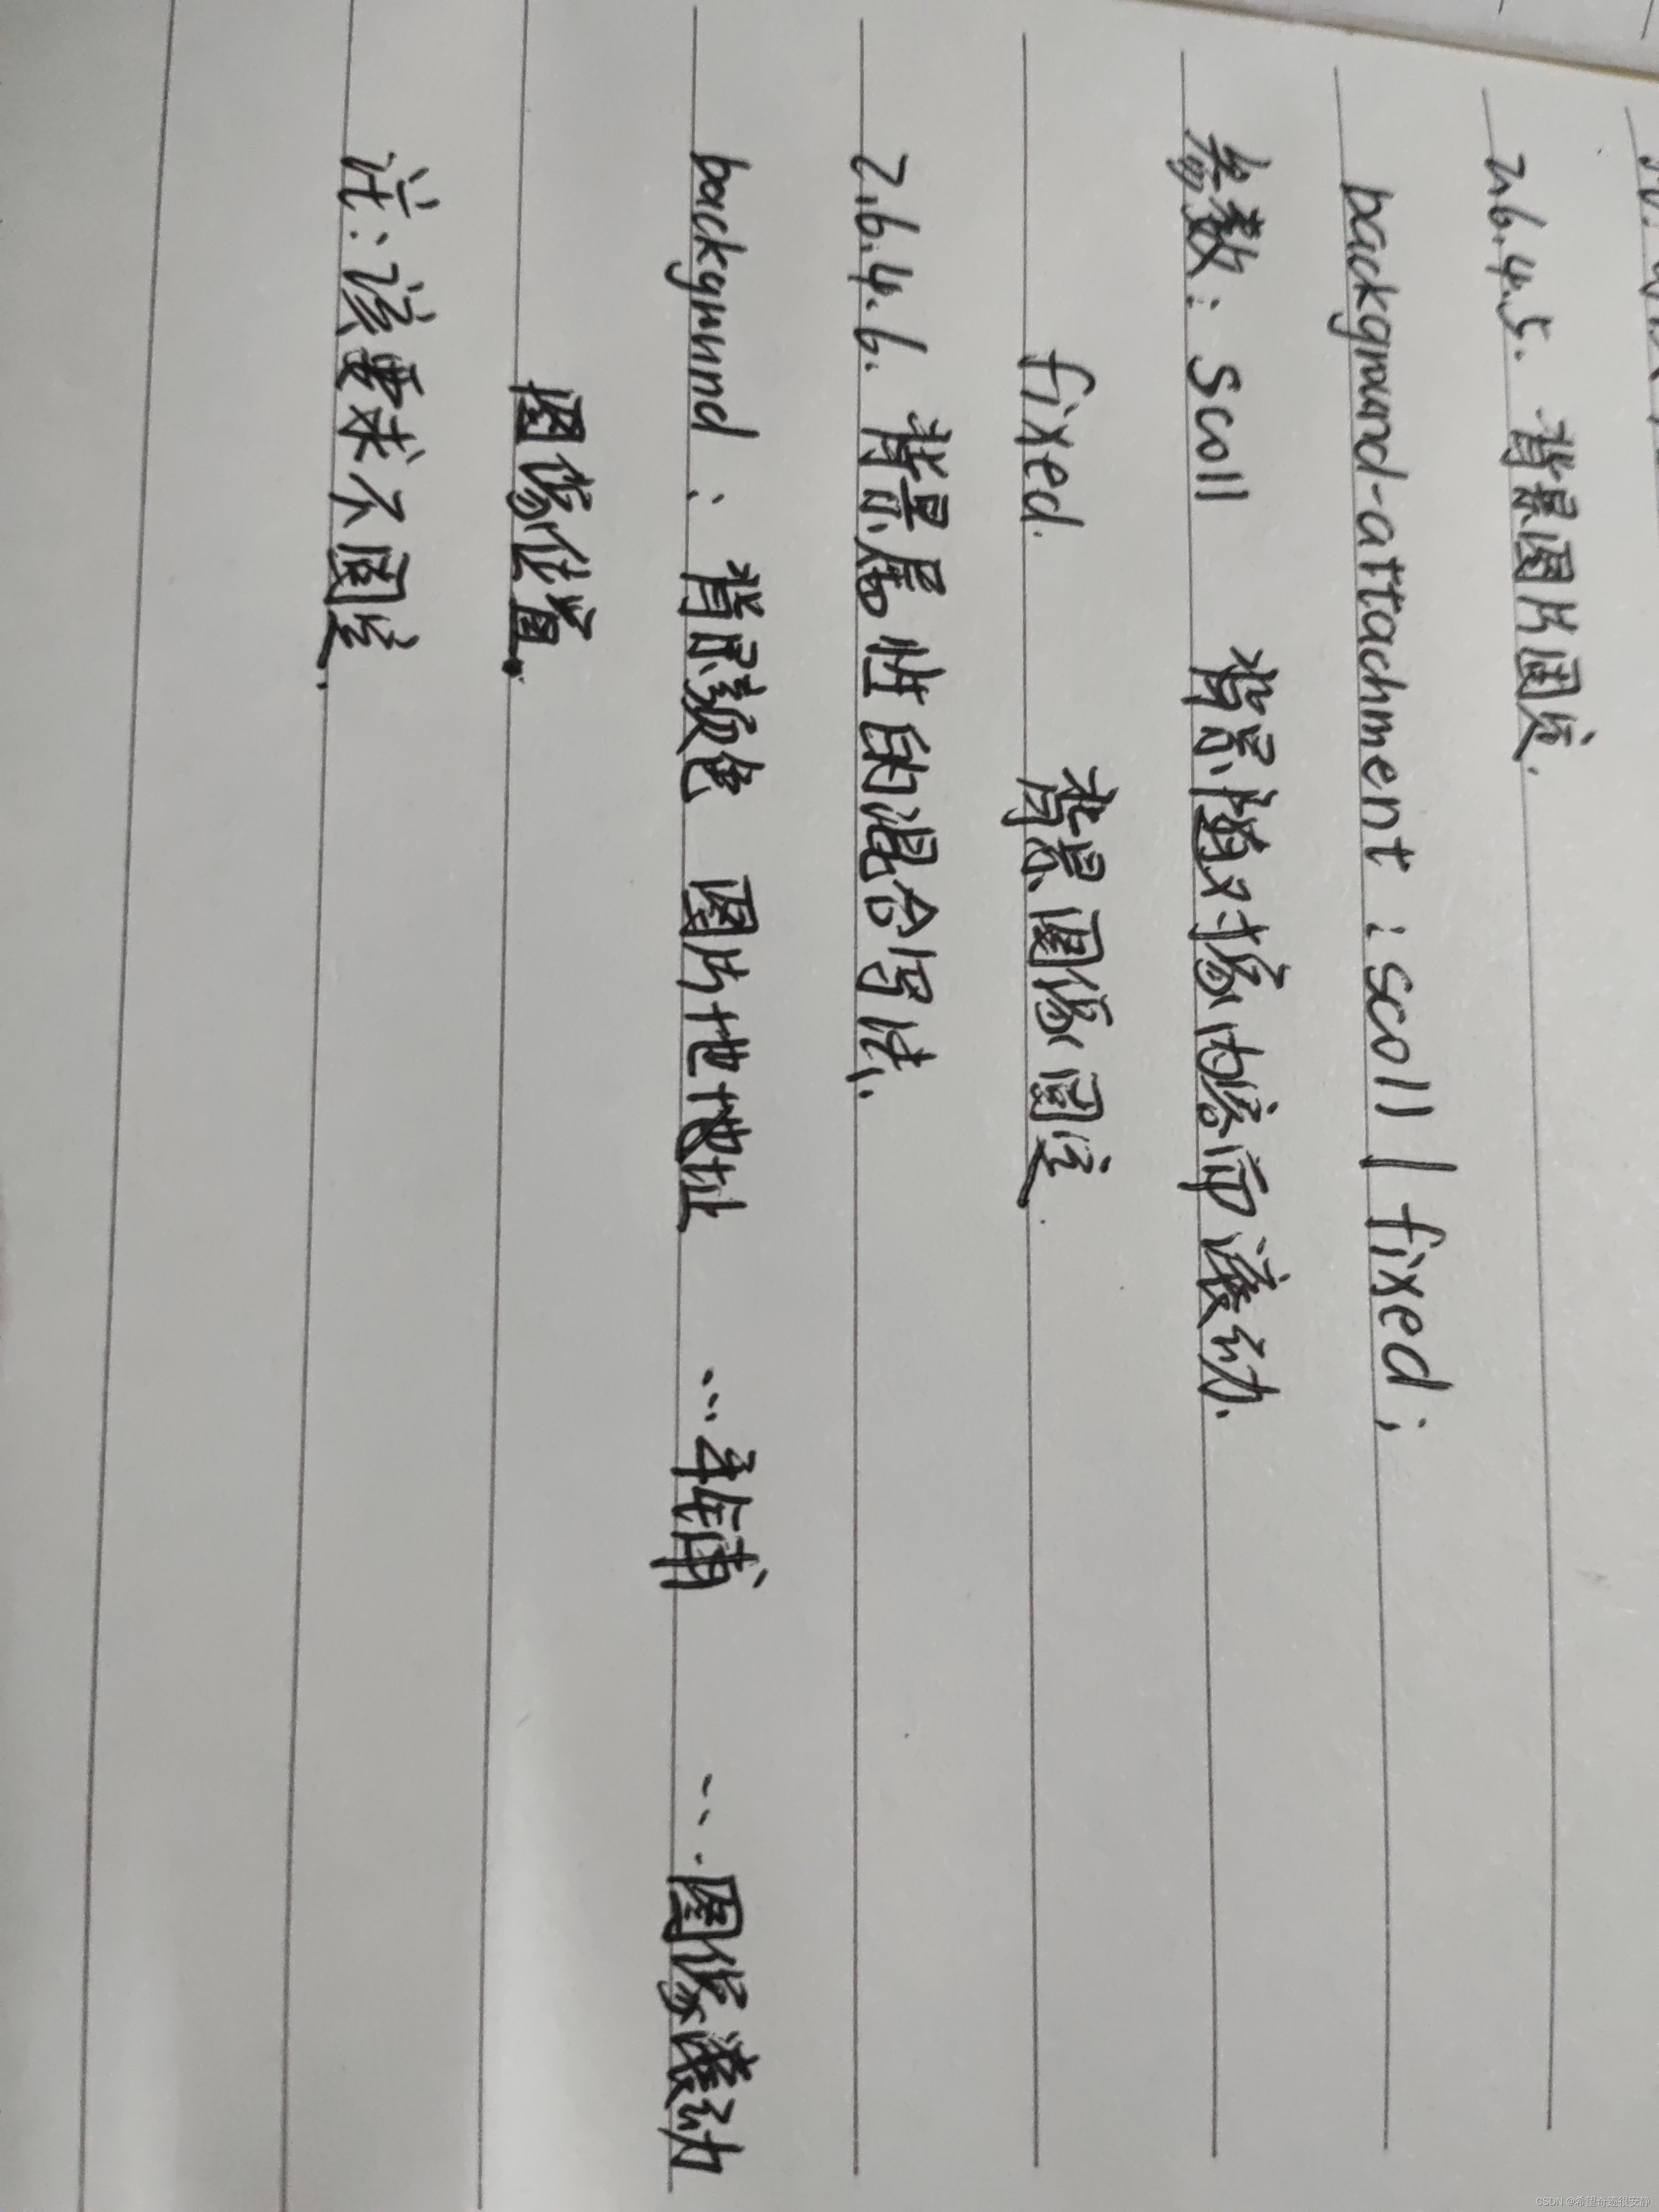 2.6.4.5. 背景图片固定.
background-attachment : scoll | fixed ;
参数: scoll 背景随对象内容而滚动.
fixed. 背景图像固定.
2.6.4.6. 背景属性的混合写法.
background : 背景颜色 图片地址 ...平铺 ...图像滚动
图像位置.
注:该要求不固定.
CSDN @希望奇迹很安静